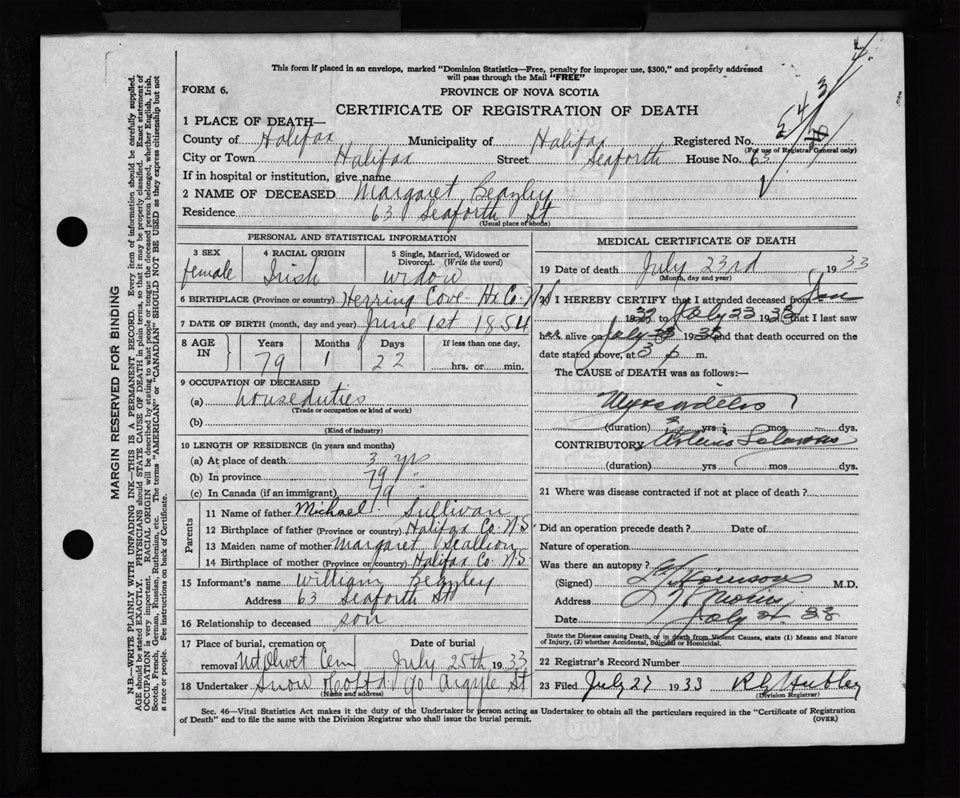 This form if placed in an envelope, marked "Dominion Statistics—Free, penalty for improper use, $300," and properly addressed
will pass through the Mail "FREE"
FORM 6.
PROVINCE OF NOVA SCOTIA
CERTIFICATE OF REGISTRATION OF DEATH
1 PLACE OF DEATH—
County of Halifax Municipality of Halifax Registered No.
(For use of Registrar General only)
City or Town Halifax Street Seaforth House No. 63
If in hospital or institution, give name
2 NAME OF DECEASED Margaret Beazley
Residence 63 Seaforth St
(Usual place of abode)
PERSONAL AND STATISTICAL INFORMATION
3 SEX
female
4 RACIAL ORIGIN
Irish
5 Single, Married, Widowed or
Divorced. (Write the word)
widow
6 BIRTHPLACE (Province or country) Herring Cove Hx Co N S
7 DATE OF BIRTH (month, day and year) June 1st 1854
8 AGE
IN
Years Months Days If less than one day,
79 1 22 hrs. or min.
9 OCCUPATION OF DECEASED
(a) house duties
(Trade or occupation or kind of work)
(b)
(Kind of industry)
10 LENGTH OF RESIDENCE (in years and months)
(a) At place of death 3 yrs
(b) In province 79 "
(c) In Canada (if an immigrant) 79
Parents
11 Name of father Michael Sullivan
12 Birthplace of father (Province or country) Halifax Co N.S
13 Maiden name of mother Margaret Scallion
14 Birthplace of mother (Province or country) Halifax Co N.S.
15 Informant's name William Beazley
Address 63 Seaforth St
16 Relationship to deceased son
17 Place of burial, cremation or Date of burial
removal Mt Olivet Cem July 25th 1933
18 Undertaker Snow & Co Ltd 90 Argyle St
(Name and address)
MEDICAL CERTIFICATE OF DEATH
19 Date of death July 23rd 1933
(Month, day and year)
20 I HEREBY CERTIFY that I attended deceased from Jan
1932 to July 23 1933 that I last saw
her alive on July 23 1933 and that death occurred on the
date stated above, at 3 p m.
The CAUSE of DEATH was as follows:—
Myocarditis
(duration) 2 yrs mos dys.
CONTRIBUTORY Arterio Sclerosis
(duration) yrs mos dys.
21 Where was disease contracted if not at place of death?
Did an operation precede death? Date of
Nature of operation
Was there an autopsy?
(Signed) M.D.
Address
Date July 24 33
State the Disease causing Death, or in death from Violent Causes, state (1) Means and Nature
of Injury, (2) whether Accidental, Suicidal or Homicidal.
22 Registrar's Record Number
23 Filed July 27 1933 R G Hubley
(Division Registrar)
Sec. 46—Vital Statistics Act makes it the duty of the Undertaker or person acting as Undertaker to obtain all the particulars required in the "Certificate of Registration
of Death" and to file the same with the Division Registrar who shall issue the burial permit.
(OVER)
MARGIN RESERVED FOR BINDING
N.B.—WRITE PLAINLY WITH UNFADING INK—THIS IS A PERMANENT RECORD. Every item of information should be carefully supplied.
AGE should be stated EXACTLY. PHYSICIANS should STATE CAUSE OF DEATH in plain terms, so that it may be properly classified. Exact statement of
OCCUPATION is very important. RACIAL ORIGIN will be described by stating to what people or tongue the deceased person belonged, whether English, Irish,
Scotch, French, German, Russian, Ruthenian, etc. The terms "AMERICAN" or "CANADIAN" SHOULD NOT BE USED as they express citizenship but not
a race or people. See instructions on back of Certificate.